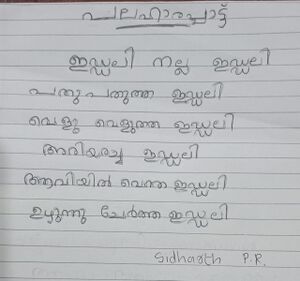 പലഹാരപ്പാട്ട്
ഇഡ്ഡലി നല്ല ഇഡ്ഡലി
പതുപതുത്ത ഇഡ്ഡലി
വെളു വെളുത്ത ഇഡ്ഡലി
അരിയരച്ച ഇഡ്ഡലി
ആവിയിൽ വെന്ത ഇഡ്ഡലി
ഉഴുന്നു ചേർത്ത ഇഡ്ഡലി
Sidharth P.R.